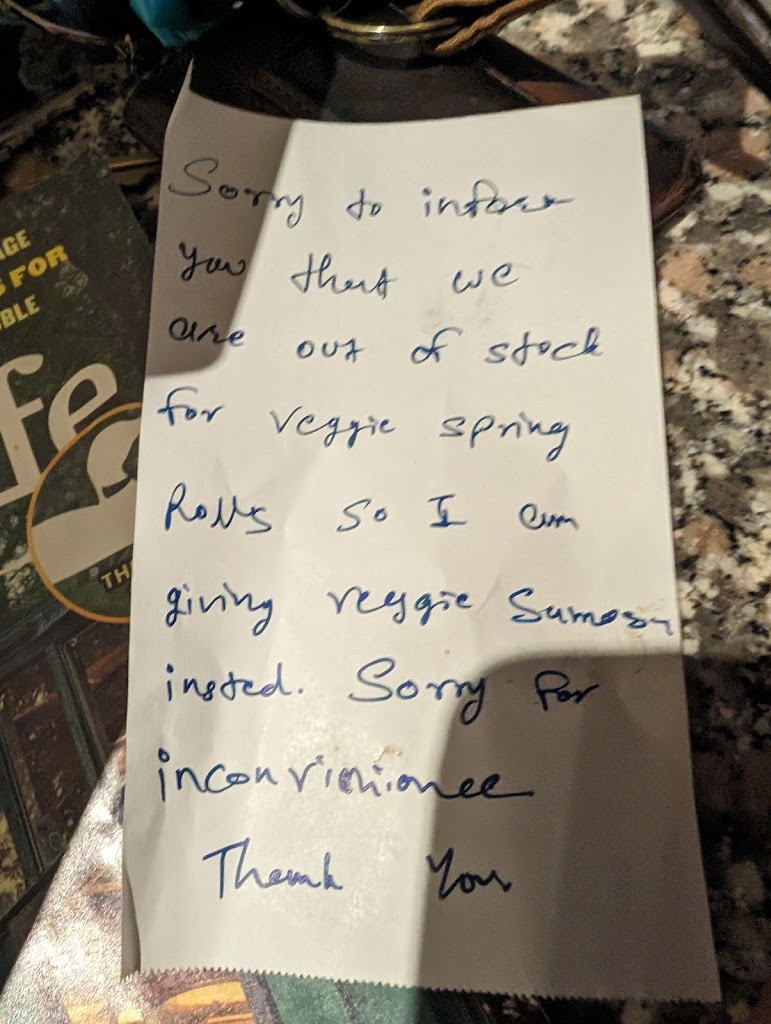 AGE
S FOR
UBLE
fe
TH
Sorry to inform
you that we
are out of stock
for veggie spring
Rolls so I am
giving veggie Samosa
insted. Sorry for
inconvinionee
Thank You